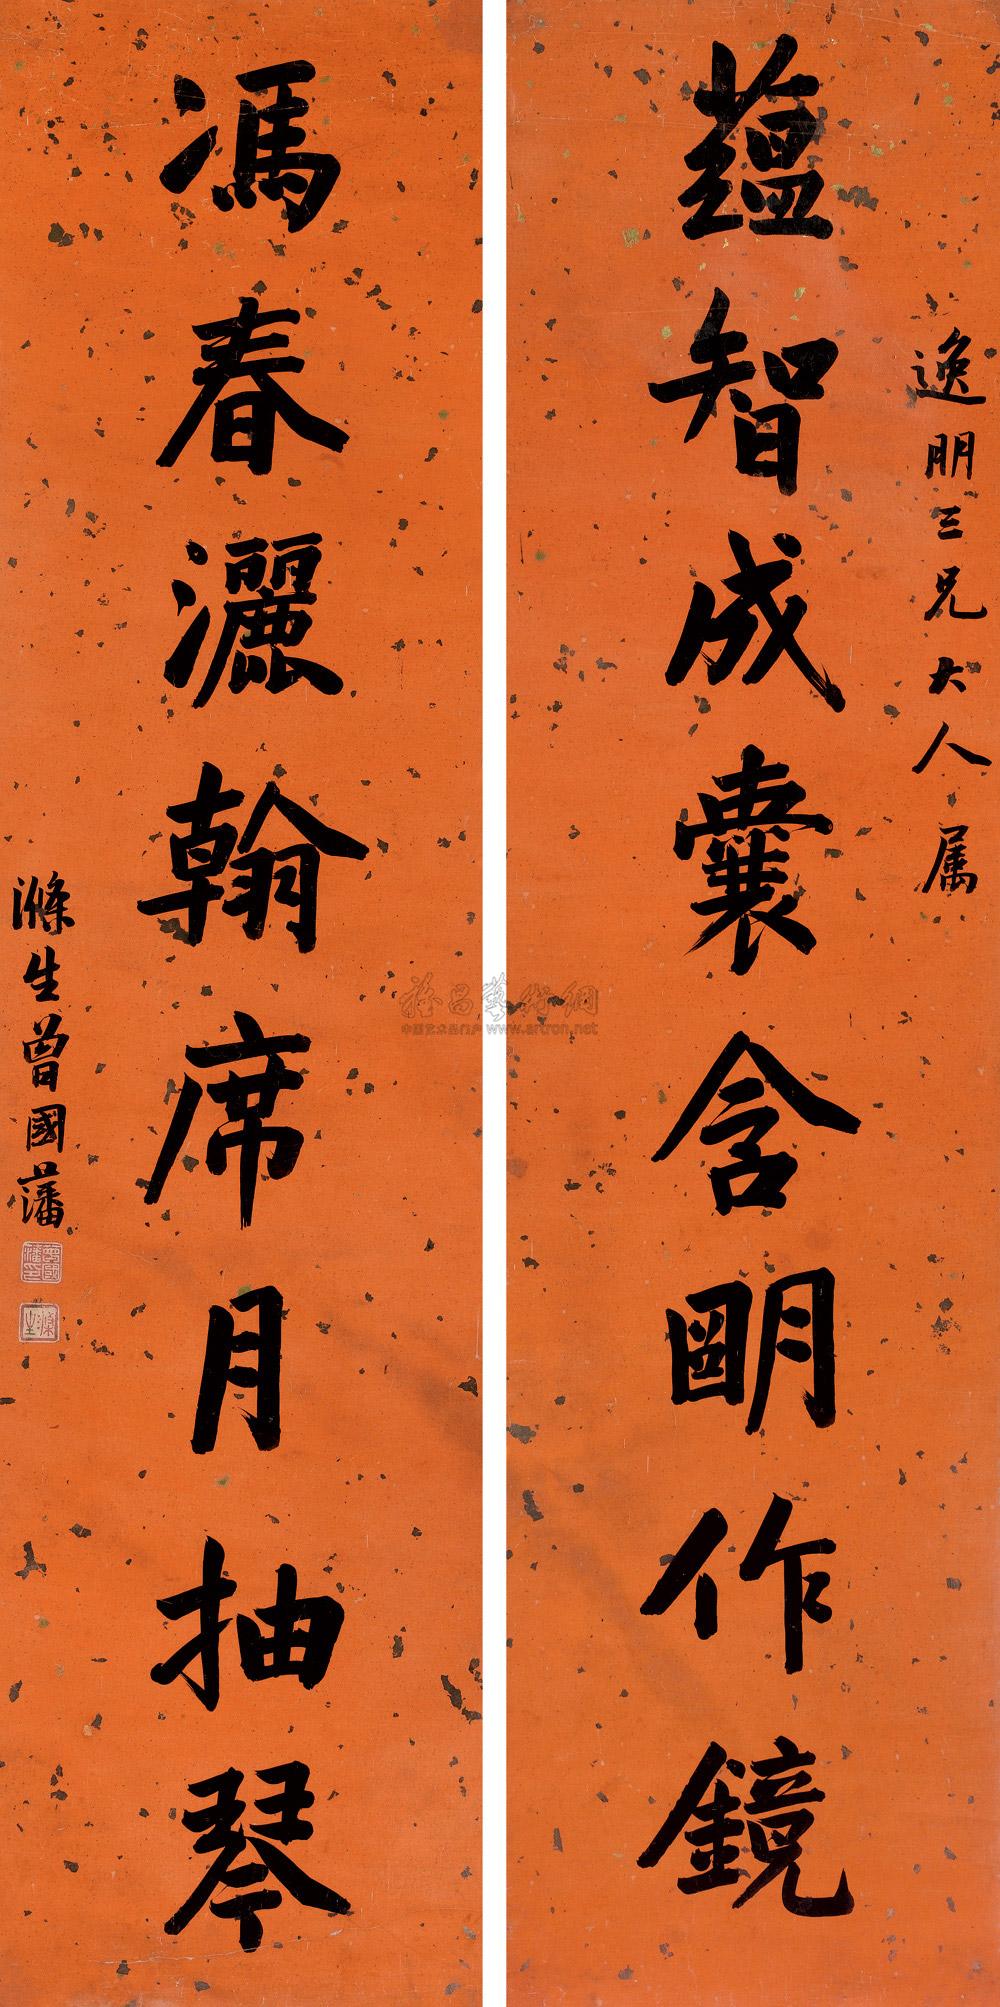 逸朋三兄大人属
蕴智成囊含明作鏡
馮春灑翰席月抽琴
滌生曾國藩
曾國藩印
滌生
雅昌藝術網
中国艺术品门户 www.artron.net